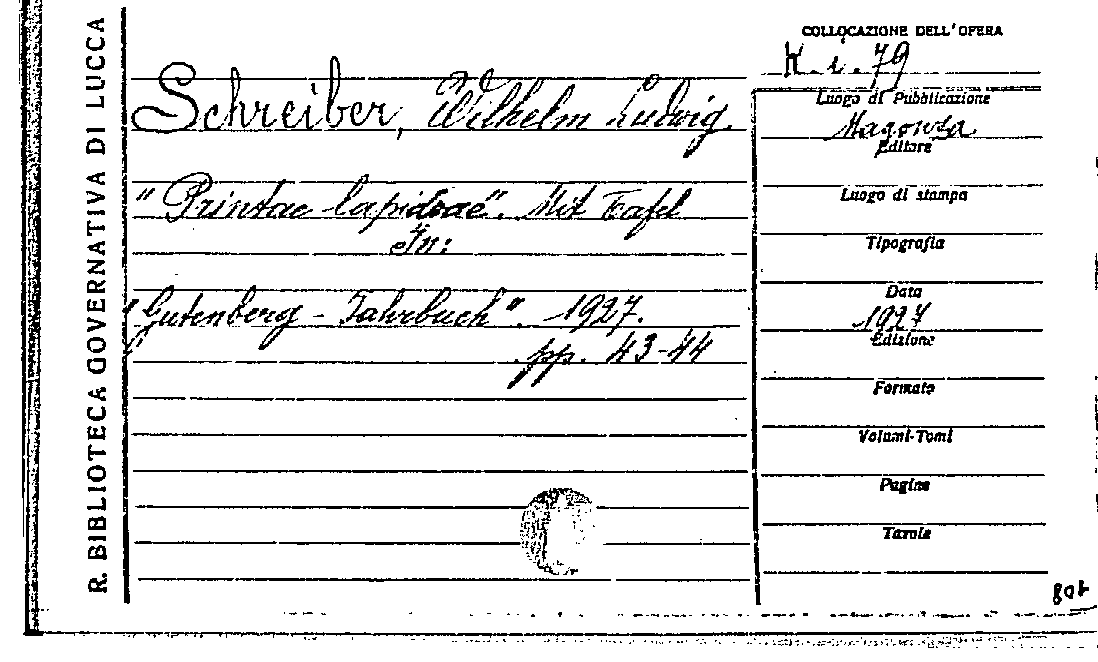 R. BIBLIOTECA GOVERNATIVA DI LUCCA
Schreiber, Wilhelm Ludwig.
"Printae lapideae". Mit Tafel
In:
"Gutenberg-Jahrbuch". 1927.
pp. 43-44
COLLOCAZIONE DELL'OPERA
K. i. 79
Luogo di Pubblicazione
Magonza
Editore
Luogo di stampa
Tipografia
Data
1927
Edizione
Formato
Volumi-Tomi
Pagine
Tavole